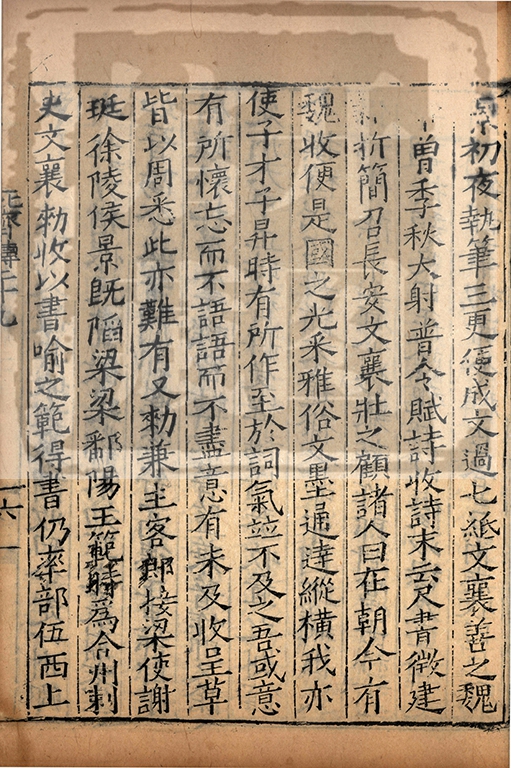 京初夜執筆三更便成文過七紙文襄善之魏
曾季秋大射普令賦詩收詩末云尺書徵建
折簡召長安文襄壯之顧諸人曰在朝今有
魏收便是國之光采雅俗文墨通達縱橫我亦
使子才子昇時有所作至於詞氣並不及之吾或意
有所懷忘而不語語而不盡意有未及收呈草
皆以周悉此亦難有又勑兼主客郎接梁使謝
珽徐陵侯景既陷梁梁鄱陽王範時爲合州刺
史文襄勑收以書喻之範得書仍率部伍西上
六